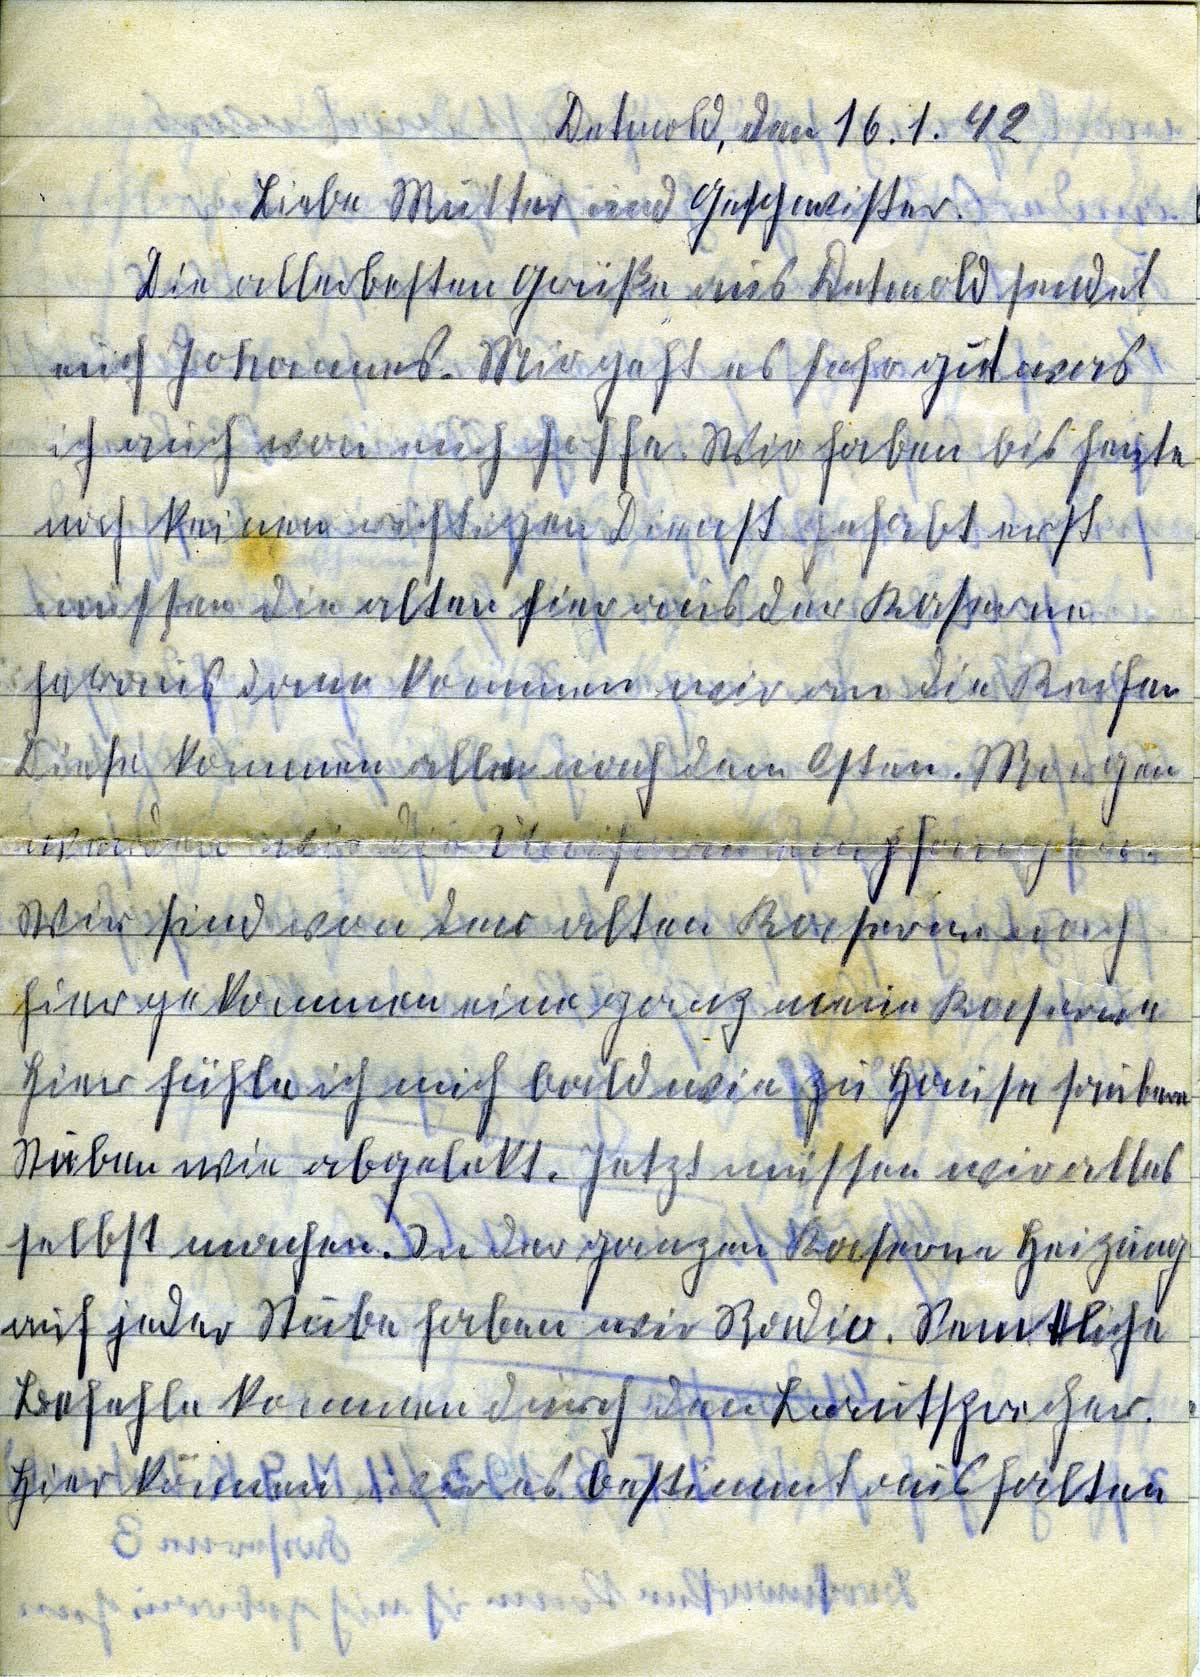 Detmold, den 16.1.42
Liebe Mutter und Geschwister.
Die allerbesten Grüße aus Detmold sendet
euch Johannes. Mir geht es sehr gut was
ich auch von euch hoffe. Wir haben bis heute
noch keinen richtigen Dienst gehabt erst
müssen die alten hier aus der Kaserne
heraus dann kommen wir an die Reihen
Diese kommen alle nach dem Osten. Morgen
werden wir die Uniform empfangen.
Wir sind von der alten Kaserne nach
hier gekommen eine ganz neue Kaserne
Hier fühle ich mich bald wie zu Hause saubere
Stuben wie abgelekt. Jetzt müssen wir alles
selbst machen. In der ganzen Kaserne Heizung
auf jeder Stube haben wir Radio. Semtliche
Befehle kommen durch den Lautsprecher.
Hier können wir es bestimmt aushalten